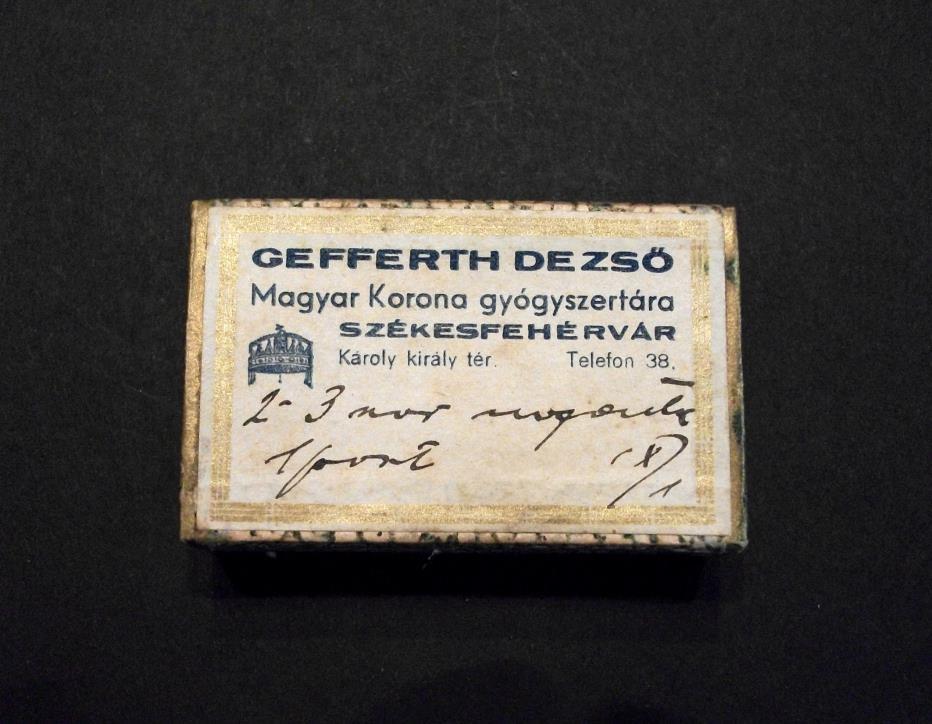 GEFFERTH DEZSŐ
Magyar Korona gyógyszertára
SZÉKESFEHÉRVÁR
Károly király tér. Telefon 38.
2-3 szor naponta
1 port